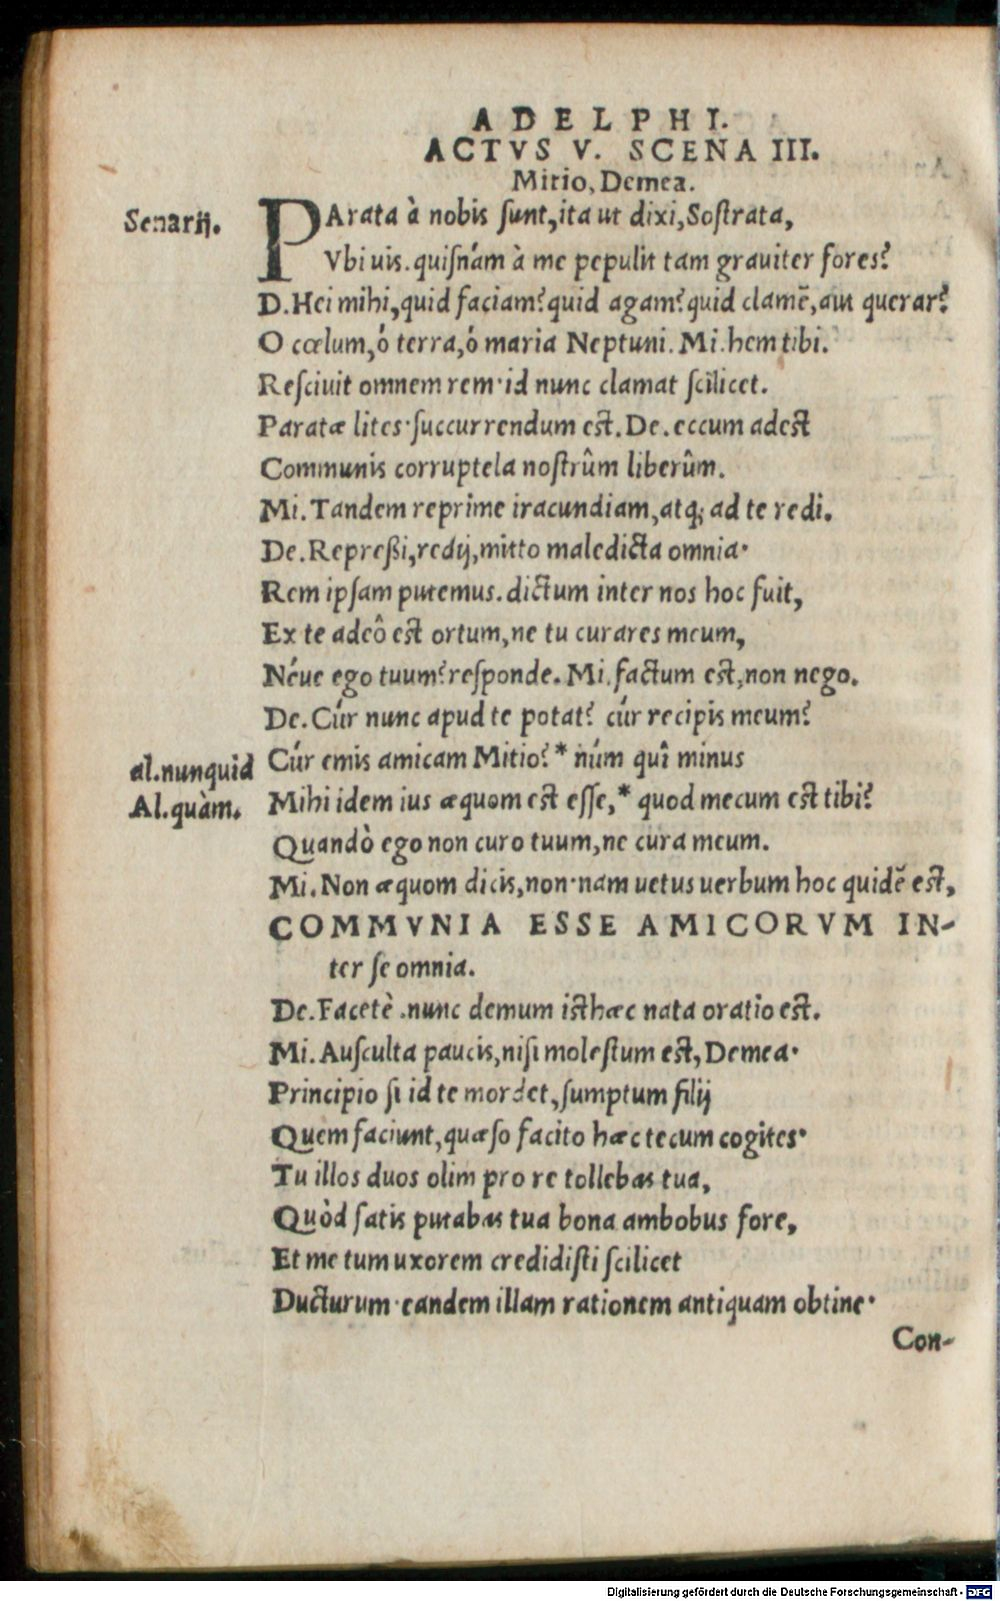 ADELPHI.
ACTVS V. SCENA III.
Mitio, Demea.
Senarij.
PArata à nobis sunt, ita ut dixi, Sostrata,
Vbi uis. quisnám à me pepulit tam grauiter fores?
D. Hei mihi, quid faciam? quid agam? quid clamē, aut querar?
O cœlum, ó terra, ó maria Neptuni. Mi. hem tibi.
Resciuit omnem rem· id nunc clamat scilicet.
Paratæ lites· succurrendum est. De. eccum adest
Communis corruptela nostrûm liberûm.
Mi. Tandem reprime iracundiam, atq; ad te redi.
De. Repreßi, redij, mitto maledicta omnia·
Rem ipsam putemus. dictum inter nos hoc fuit,
Ex te adeô est ortum, ne tu curares meum,
Néue ego tuum? responde. Mi. factum est, non nego.
De. Cúr nunc apud te potat? cúr recipis meum?
al. nunquid
Cúr emis amicam Mitio? * núm quî minus
Al. quàm.
Mihi idem ius æquom est esse, * quod mecum est tibi?
Quandò ego non curo tuum, ne cura meum.
Mi. Non æquom dicis, non· nam uetus uerbum hoc quidē est,
COMMVNIA ESSE AMICORVM IN-
ter se omnia.
De. Facetè .nunc demum isthæc nata oratio est.
Mi. Ausculta paucis, nisi molestum est, Demea·
Principio si id te mordet, sumptum filij
Quem faciunt, quæso facito hæc tecum cogites·
Tu illos duos olim pro re tollebas tua,
Quòd satis putabas tua bona ambobus fore,
Et me tum uxorem credidisti scilicet
Ducturum· eandem illam rationem antiquam obtine·
Con-
Digitalisierung gefördert durch die Deutsche Forschungsgemeinschaft - DFG